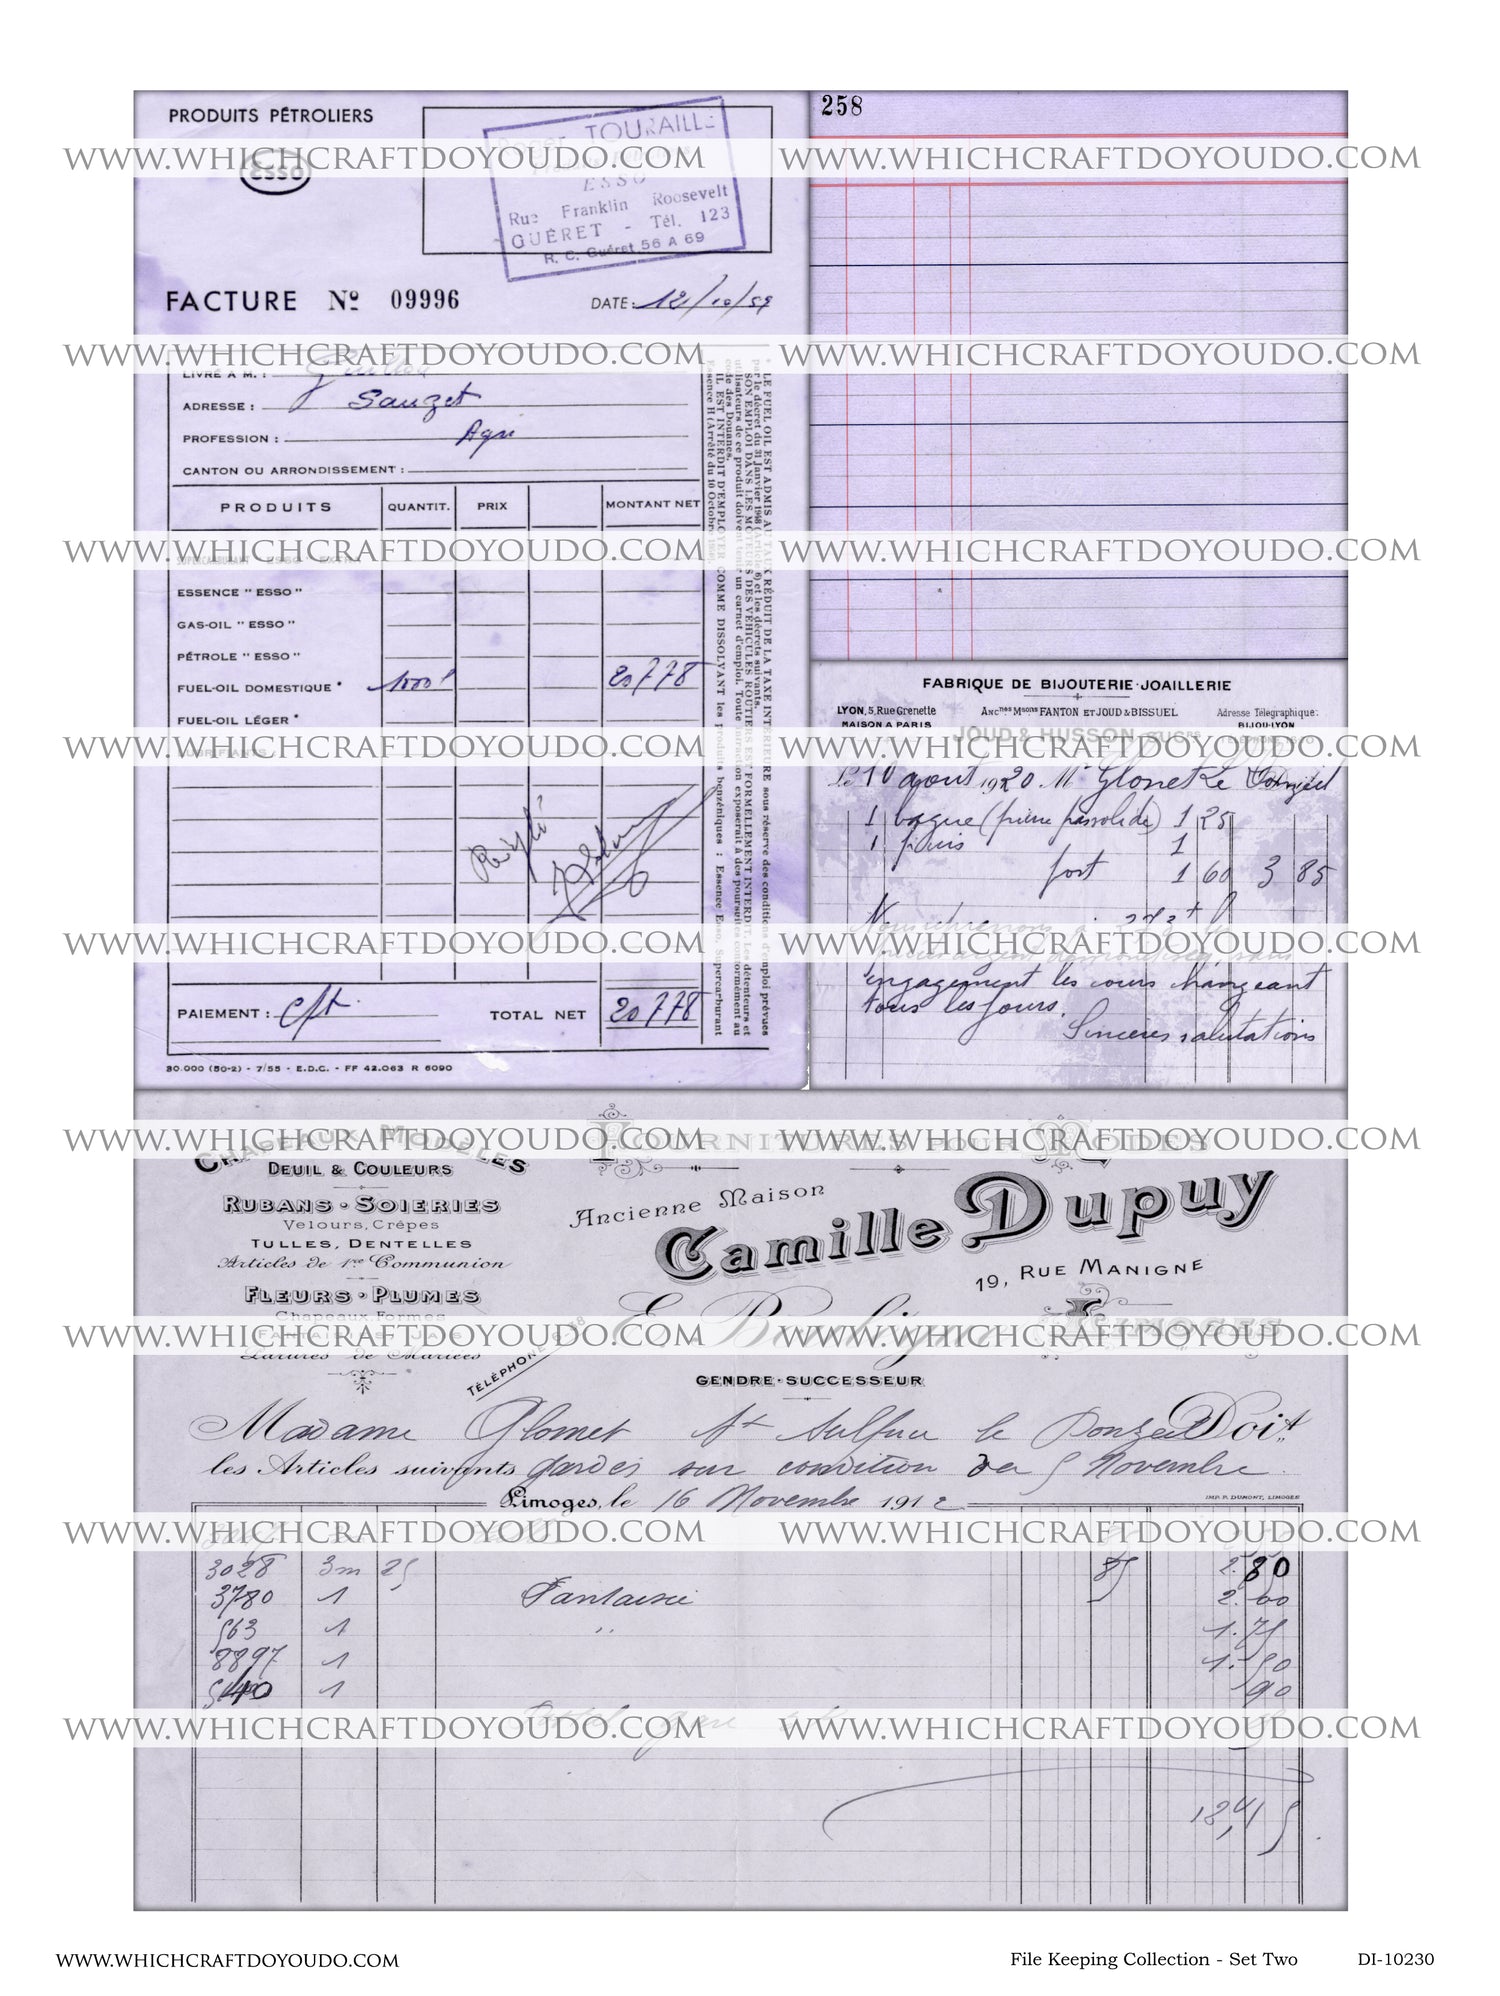 PRODUITS PÉTROLIERS
ESSO
Roger TOURAILLE
ESSO
Rue Franklin Roosevelt
GUÉRET - Tél. 123
R. C. Guéret 56 A 69
FACTURE Nº 09996
DATE: 12/10/59
LIVRÉ A M. :
ADRESSE : Sauzet
PROFESSION : Agri
CANTON OU ARRONDISSEMENT :
PRODUITS QUANTIT. PRIX MONTANT NET
SUPERCARBURANT ESSO EXTRA
ESSENCE " ESSO "
GAS-OIL " ESSO "
PÉTROLE " ESSO "
FUEL-OIL DOMESTIQUE * 1000 l 20778
FUEL-OIL LÉGER *
LUBRIFIANTS :
PAIEMENT : cpt. TOTAL NET 20778
30.000 (50-2) - 7/55 - E.D.C. - FF 42.063 R 6090
* LE FUEL OIL EST ADMIS AU TAUX RÉDUIT DE LA TAXE INTÉRIEURE sous réserve des conditions d'emploi prévues
SON EMPLOI DANS LES MOTEURS DES VÉHICULES ROUTIERS EST FORMELLEMENT INTERDIT. Les détenteurs et
utilisateurs de ce produit doivent tenir un carnet d'emploi. Toute infraction exposerait à des poursuites conformément au
code des Douanes.
IL EST INTERDIT D'EMPLOYER COMME DISSOLVANT les produits benzéniques : Essence Esso, Supercarburant
258
FABRIQUE DE BIJOUTERIE-JOAILLERIE
LYON, 5, Rue Grenette Ancnes Msons FANTON ET JOUD & BISSUEL Adresse Télégraphique:
MAISON A PARIS BIJOU-LYON
JOUD & HUSSON SUCrs
Le 10 août 1920 Mr Glonet Le
1 bague 1 25
1
port 1 60 3 85
engagement les cours changeant
tous les jours.
Sinceres salutations
CHAPEAUX MODÈLES
DEUIL & COULEURS
RUBANS - SOIERIES
Velours, Crêpes
TULLES, DENTELLES
Articles de 1re Communion
FLEURS - PLUMES
Chapeaux Formes
FANTAISIES JAIS
Parures de Mariées
TÉLÉPHONE
FOURNITURES POUR MODES
Ancienne Maison
Camille Dupuy
19, RUE MANIGNE
LIMOGES
GENDRE-SUCCESSEUR
Madame Glomet St Sulpice le Donzeil Doit
les Articles suivants gardés sur condition du 5 Novembre
Limoges, le 16 Novembre 1912
IMP. P. DUMONT, LIMOGES
3028 3m 25 85 2.80
3780 1 Fantaisie 2.00
563 1 " 1.75
8897 1 1.50
1 90
WWW.WHICHCRAFTDOYOUDO.COM WWW.WHICHCRAFTDOYOUDO.COM
WWW.WHICHCRAFTDOYOUDO.COM WWW.WHICHCRAFTDOYOUDO.COM
WWW.WHICHCRAFTDOYOUDO.COM WWW.WHICHCRAFTDOYOUDO.COM
WWW.WHICHCRAFTDOYOUDO.COM WWW.WHICHCRAFTDOYOUDO.COM
WWW.WHICHCRAFTDOYOUDO.COM WWW.WHICHCRAFTDOYOUDO.COM
WWW.WHICHCRAFTDOYOUDO.COM WWW.WHICHCRAFTDOYOUDO.COM
WWW.WHICHCRAFTDOYOUDO.COM WWW.WHICHCRAFTDOYOUDO.COM
WWW.WHICHCRAFTDOYOUDO.COM WWW.WHICHCRAFTDOYOUDO.COM
WWW.WHICHCRAFTDOYOUDO.COM WWW.WHICHCRAFTDOYOUDO.COM
WWW.WHICHCRAFTDOYOUDO.COM File Keeping Collection - Set Two DI-10230